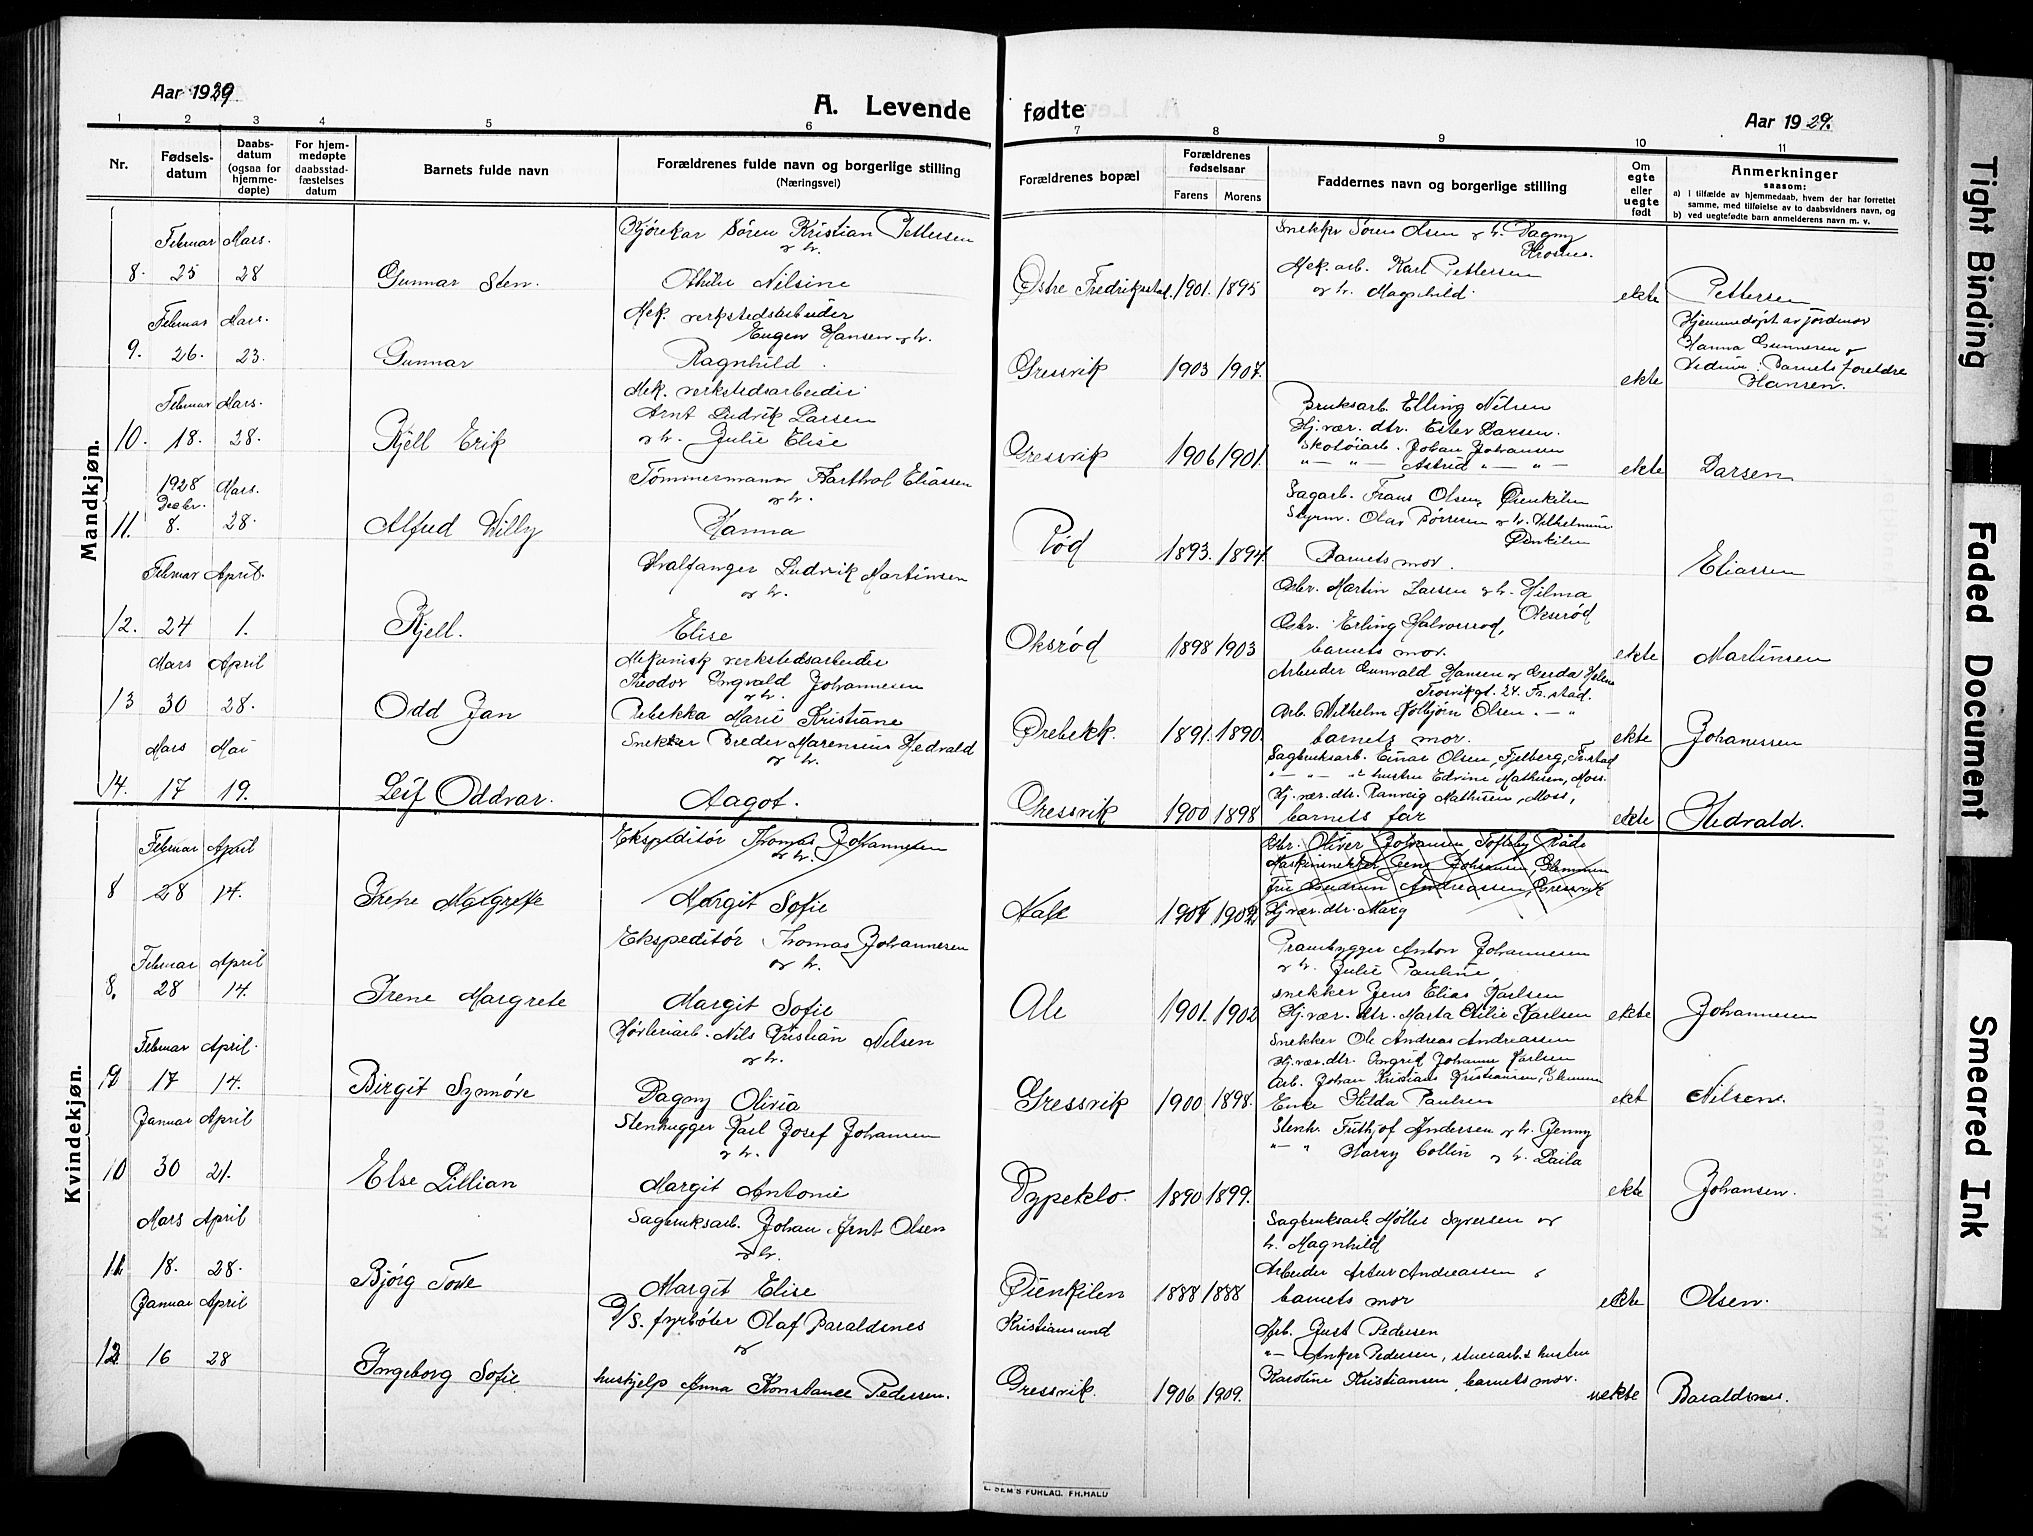 Aar 1929.
A. Levende fødte
Aar 1929.
1 2 3 4 5 6 7 8 9 10 11
Nr.
Fødsels-
datum
Daabs-
datum
(ogsaa for
hjemme-
døpte)
For hjem-
medøpte
daabsstad-
fæstelses
datum
Barnets fulde navn
Forældrenes fulde navn og borgerlige stilling
(Næringsvei)
Forældrenes bopæl
Forældrenes
fødselsaar
Farens Morens
Faddernes navn og borgerlige stilling
Om
egte
eller
uegte
født
Anmerkninger
saasom:
a) I tilfælde av hjemmedaab, hvem der har forrettet
samme, med tilføielse av to daabsvidners navn, og
b) ved uegtefødte barn anmelderens navn m. v.
Mandkjøn.
8. Februar 25 Mars. 28
Gunnar Sten.
Kjørekar Søren Kristian Pettersen
og h.
Othilie Nilsine
Østre Fredrikstad. 1901. 1895
Snekker Søren Olsen og h. Dagny
Krosnes.
Mek. arb. Karl Pettersen
og h. Magnhild.
ekte
Pettersen
9. Februar 26. Mars. 23.
Gunnar
Mek. verkstedsarbeider
Eugen Hansen og h.
Ragnhild
Gressvik 1903 1907.
ekte
Hjemmedøpt av jordmor
Hanna Gunnersen
Barnets foreldre
Hansen.
10. Februar 18. Mars. 28.
Kjell Erik
Mek. verkstedsarbeider
Arnt Ludvik Larsen
og h. Julie Elise
Gressvik 1906 1901.
Bruksarb. Elling Nilsen
Hj. vær. dtr. Ester Larsen.
Skotøiarb. Johan Johansen
" — " — Astrid " — " —
ekte
Larsen
11. 1928 Decbr. 8. Mars. 28.
Alfred Willy
Tømmermann Barthol Eliassen
og h.
Hanna
Rød 1893. 1894.
Sagarb. Frans Olsen, Øienkilen
Styrm. Olav Børresen og h. Vilhelmine
Øienkilen
Barnets mor.
Eliassen
12. Februar 24 April. 1.
Kjell.
Hvalfanger Ludvik Martinsen
og h.
Elise
Oksrød 1898 1903
Gbr. Martin Larsen og h. Hilma
Oksrød
Gbr. Erling Halvorsrød,
barnets mor.
ekte
Martinsen
13 Mars 30 April 28.
Odd Jan
Mekanisk verkstedsarbeider
Teodor Ingvald Johannesen
og h.
Rebekka Marie Kristiane
Ørebekk. 1891. 1890.
Arbeider Gunvald Hansen og Gerda Helene
Trosvikgt. 24. Fr.stad.
Arb. Wilhelm Kolbjørn Olsen. — "
barnets mor.
ekte
Johanessen
14. Mars 17 Mai 19.
Leif Oddvar.
Snekker Breder Marensius Hedvald
og h.
Aagot.
Gressvik 1900 1898
Sagbruksarb. Einar Olsen, Fjelberg, Fr.stad
" — " — " hustru Edvine Mathisen, Moss.
Hj. vær. dtr. Ranveig Mathisen, Moss,
barnets far
ekte
Hedvald.
Kvindekjøn.
8 Februar 28 April 14.
Irene Margrete
Ekspeditør Thomas Johannesen
og h.
Margit Sofie
Ale 1901 1902
Gbr. Oliver Johansen Tofteby Råde
Maskinsnekker Jens Johansen, Glemmen
Fru Gudrun Andreassen, Gressvik
Hj. vær. dtr. Marg
8. Februar 28 April 14.
Irene Margrete
Ekspeditør Thomas Johannesen
og h.
Margit Sofie
Ale 1901. 1902
Prambygger Anton Johannesen
og h. Julie Pauline,
snekker Jens Elias Karlsen
Hj. vær. dtr. Marta Otilie Karlsen
ekte
Johannesen
9 Februar 17 April. 14.
Birgit Synnøve
Høvleriarb. Nils Kristian Nilsen
og h.
Dagny Olivia
Gressvik 1900 1898.
Snekker Ole Andreas Andreassen
Hj. vær. dtr. Ingrid Johanne Karlsen
Arb. Johan Kristians Kristiansen, Glemmen
Enke Hilda Paulsen
ekt
Nilsen.
10 Januar 30 April 21.
Else Lillian
Stenhugger Karl Josef Johansen
og h.
Margit Antonie
Pypeklo. 1890 1899.
Stenh. Futhjof Andersen og h. Jenny
" — " Harry Collin og h. Laila
ekte
Johansen.
11. Mars 18. April 28.
Bjørg Tove
Sagbruksarb. Johan Arnt Olsen
og h.
Margit Elise
Øienkilen 1888 1888
Sagbruksarb. Møller Syversen og
h. Magnhild
Arbeider Artur Andreassen
barnets mor
ekte
Olsen.
12. Januar 16 April 28
Ingeborg Sofie
D/S. fyrbøter Olaf Baraldsnes
og
hushjelp Anna Konstance Pedersen.
Kristiansund
Gressvik. 1906 1909.
Arb. Just Pedersen
" — Anker Pedersen,
Karoline Kristiansen, barnets mor.
uekte
Baraldsnes.
E. SEM'S FORLAG. FR.HALD
Tight Binding
Faded Document
Smeared Ink